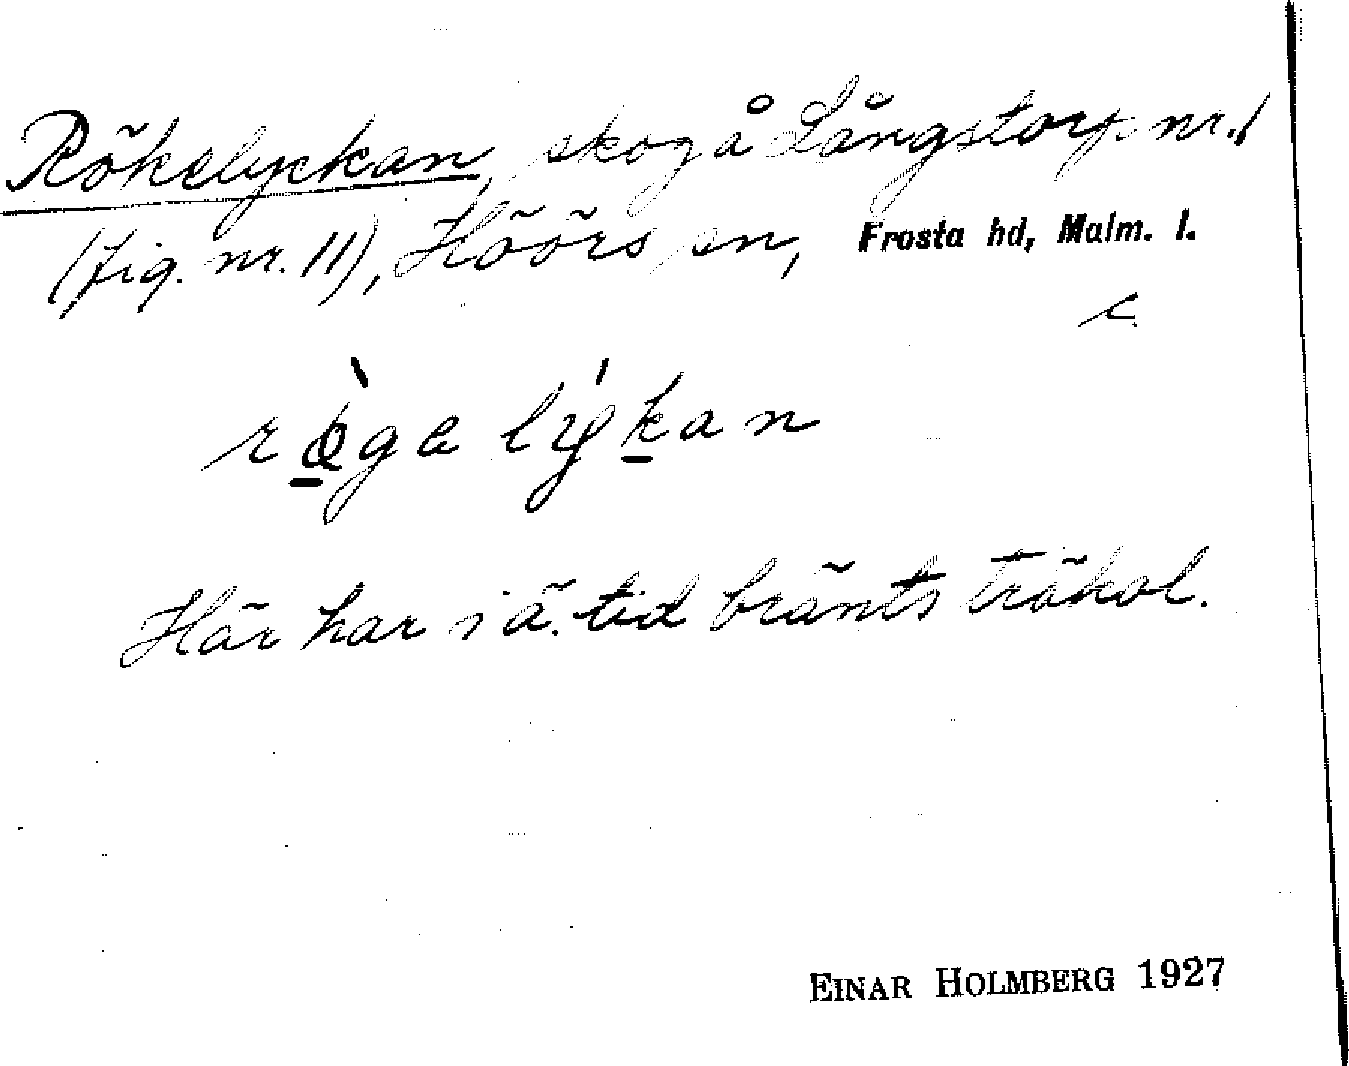 Rökelyckan, skog å Långstorp nr. 1
(fig. nr. 11), Höörs sn, Frosta hd, Malm. l.
c
rø̀ge lýkan
Här har i ä. tid bränts träkol.
EINAR HOLMBERG 1927